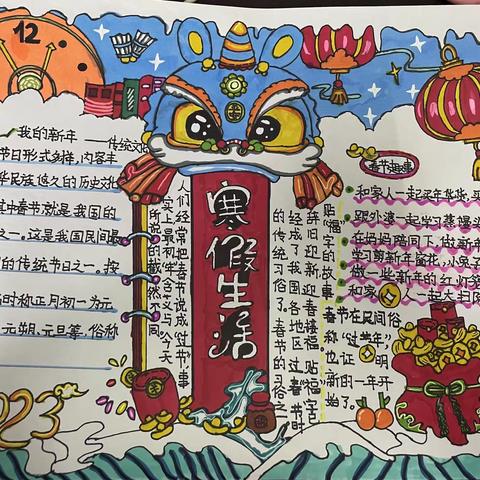 12
我的新年 ——传统文化
节日形式多样，内容丰
华民族悠久的历史文化
其中春节就是我国的
之一。这是我国民间最
的传统节日之一。按
时称正月初一为元
元朔、元旦等，俗称
2023
人们经常把春节说成“过节”，事
说的截然不同
寒假生活
贴“福”字的故事
辞旧迎新迎春接福，贴“福”字已
经成了我国各地区过春节时
的传统习俗了。春节的习俗之
春节在民间俗
称“过年”
也证明
旧一年开
始了。
春节趣事
和家人一起买年货，买
跟外婆一起学习蒸馒头
在妈妈陪同下，做新年
学习剪新年窗花，小兔子
做一些新年的红灯笼
和家人一起大扫除